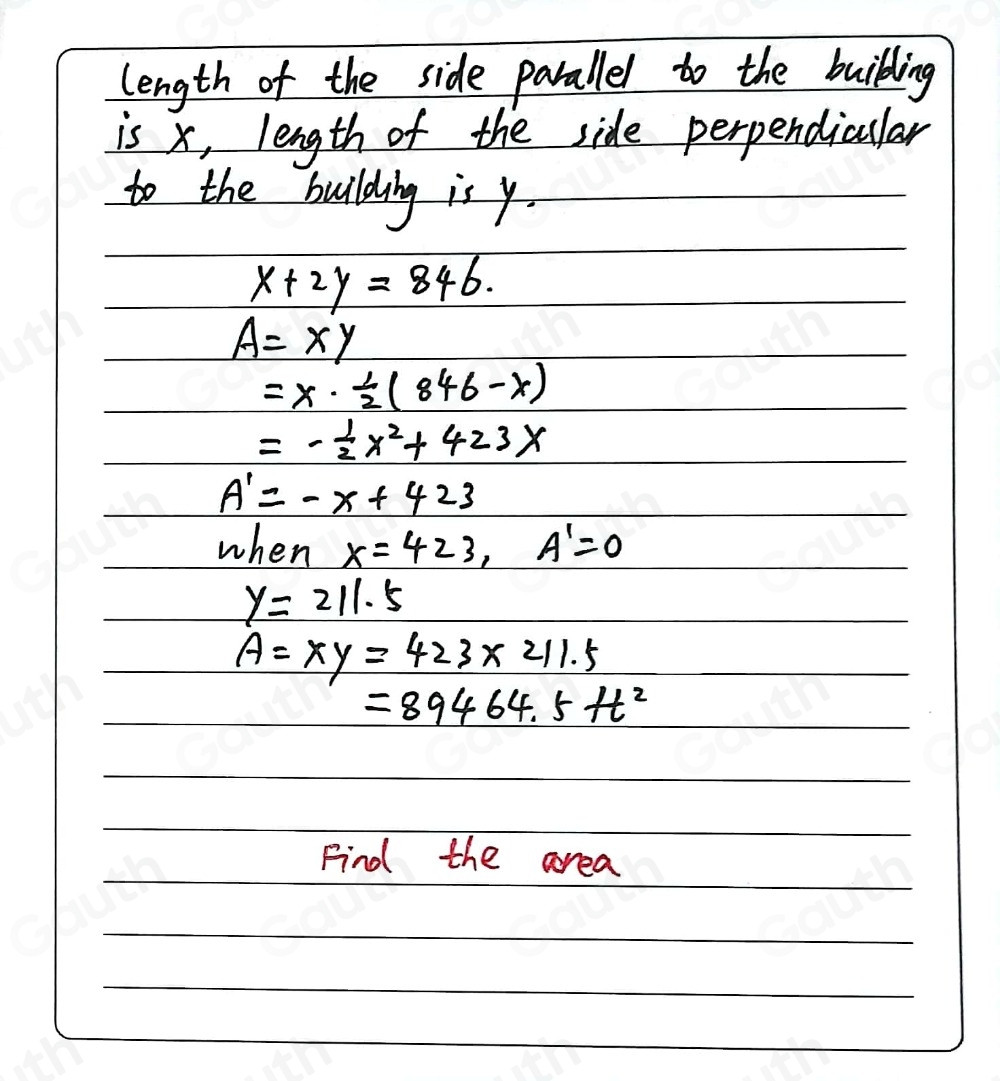 length of the side parallel to the building
is x, length of the side perpendicular
to the building is y.
x+2y = 846.
A= xy
=x·½(846-x)
= -½x²+423x
A'= -x+423
when x=423, A'=0
y= 211.5
A=xy=423×211.5
=89464.5 ft²
Find the area